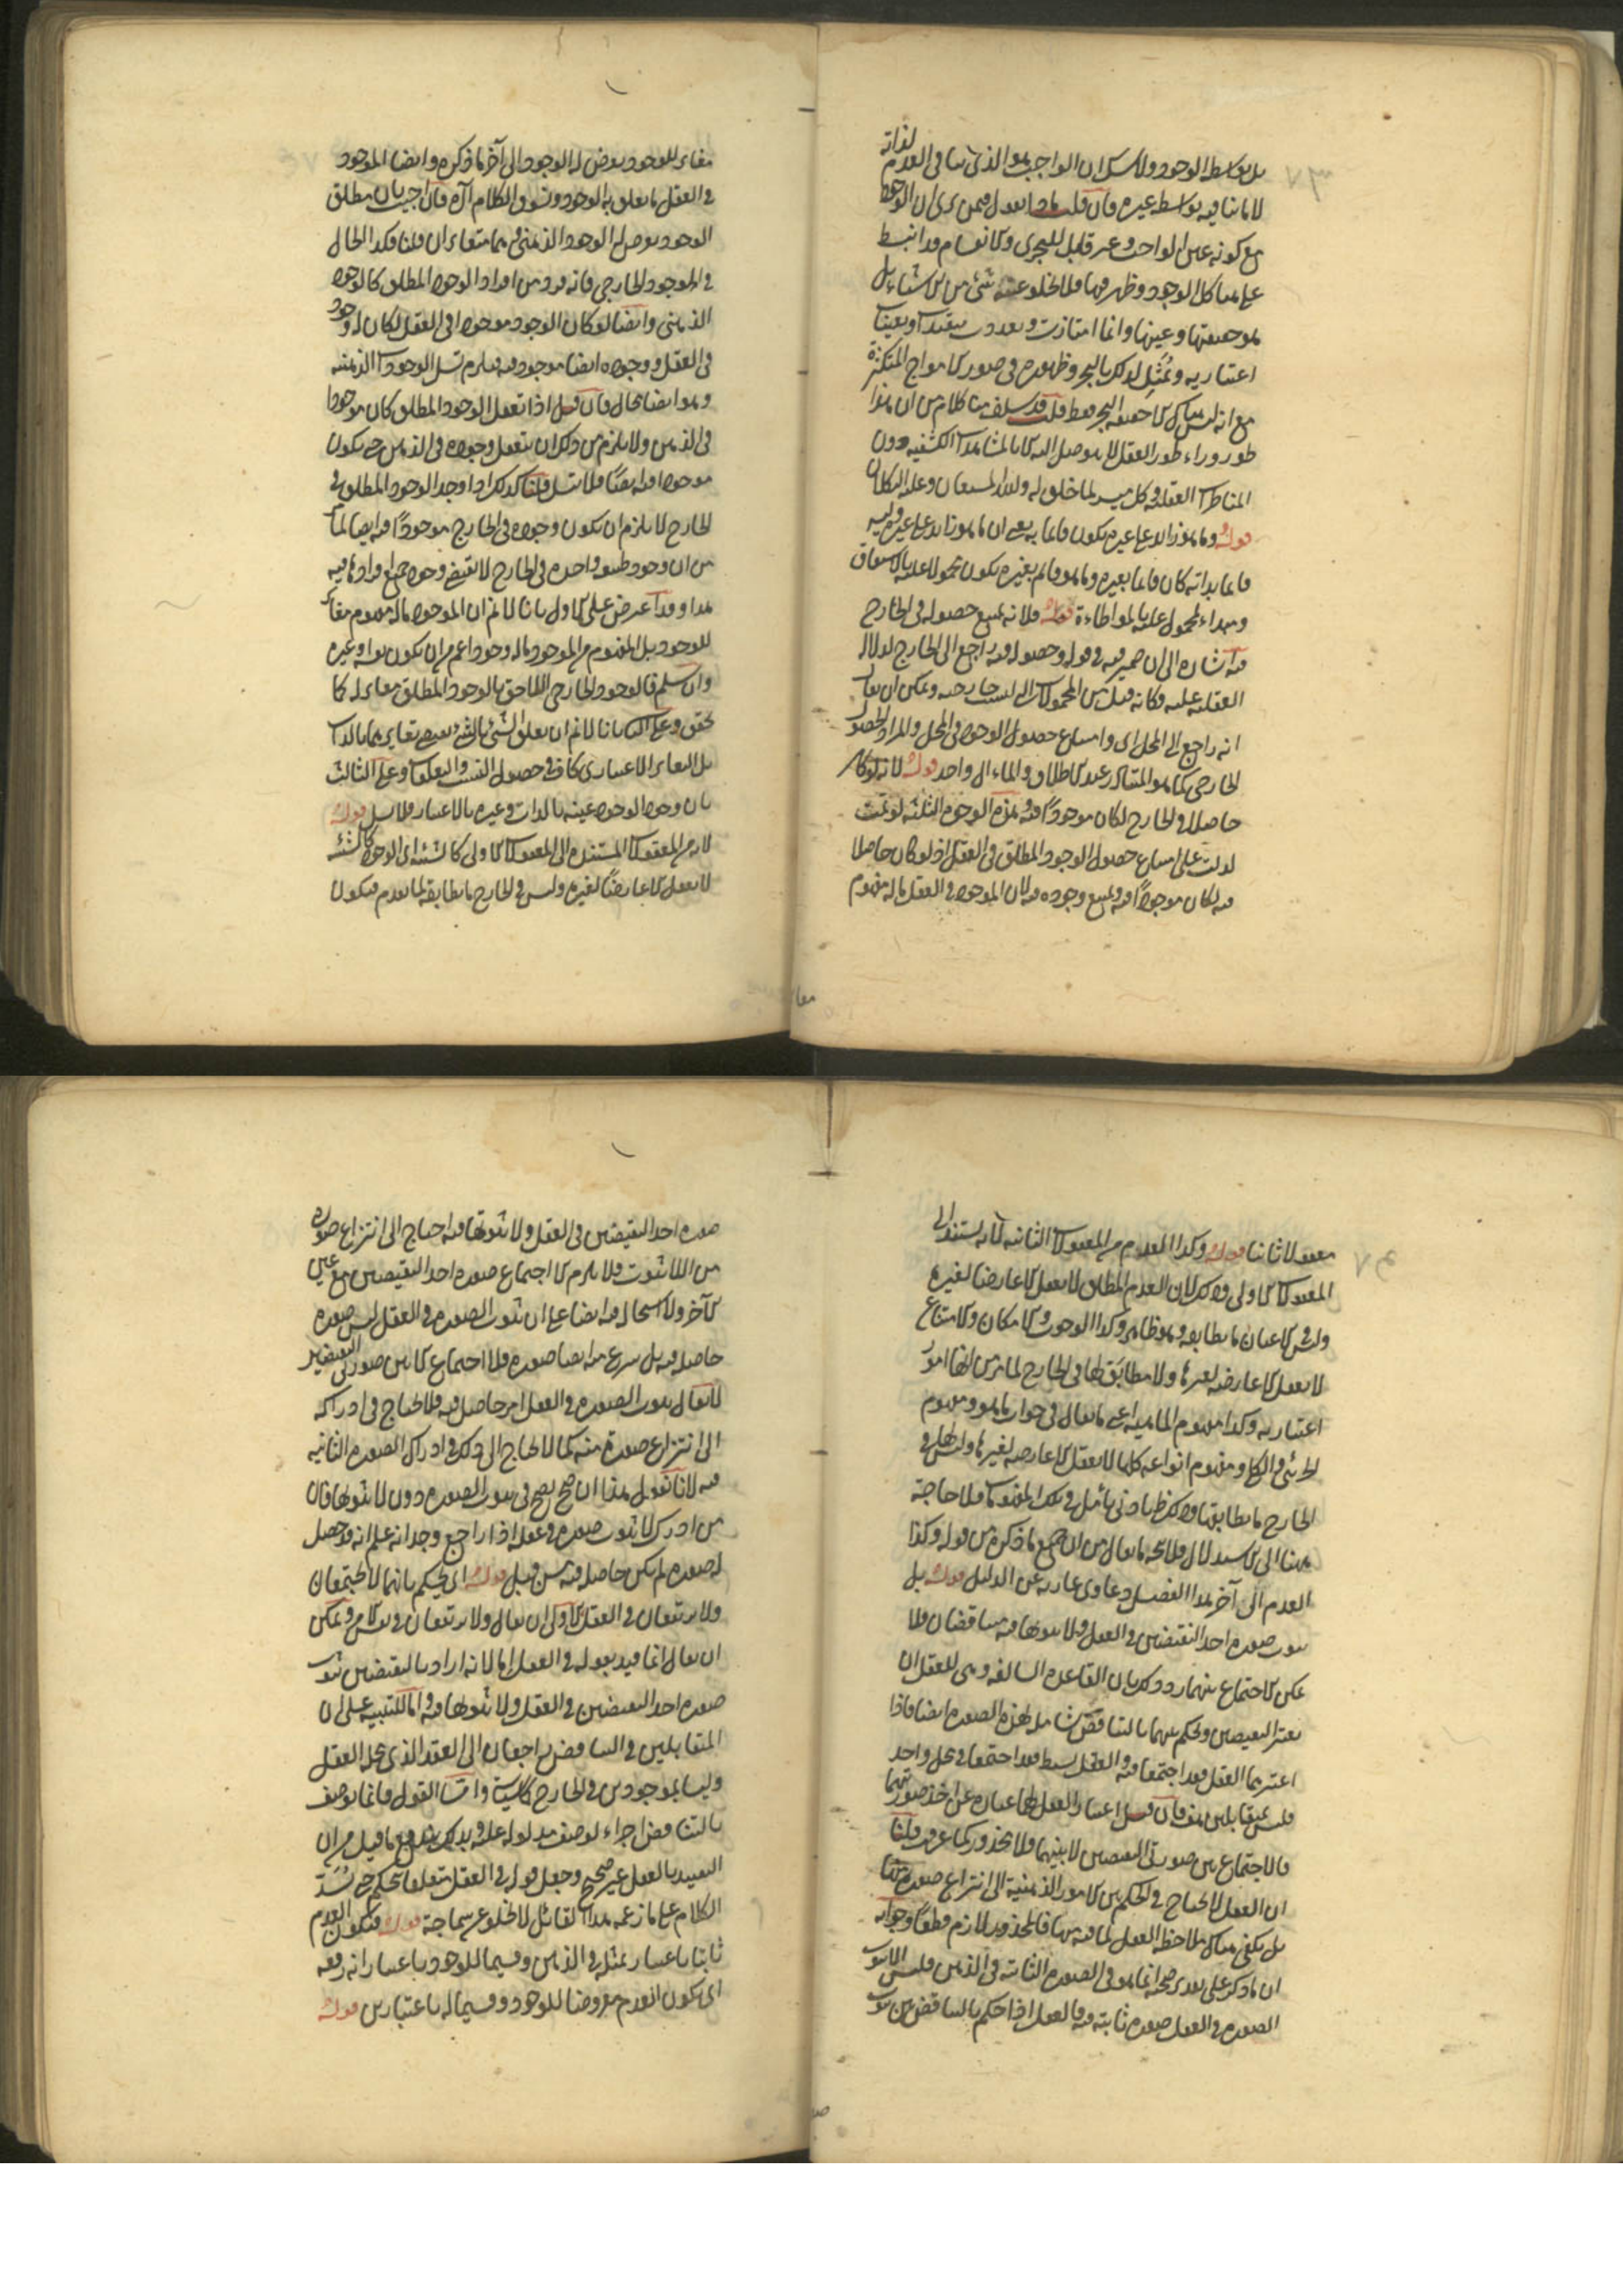 لذاته
بل بواسطة الوجود ولا شك ان الواجب هو الذي ينافي العدم
لا ما ينافيه بواسطة غيره فان قلت ماذا تقول فيمن يرى ان الوجود
مع كونه عين الواجب وغير قابل للتجزي والانقسام قد انبسط
على هياكل الوجود وظهر فيها فلا يخلو عنه شيء من الاشياء بل
هو حقيقتها وعينها وانما امتازت وتعددت بتقيدات وتعينات
اعتبارية وتمثيل لذلك بالبحر وظهوره في صور الامواج المتكثرة
مع انه ليس هناك الا حقيقة البحر فقط قلت قد سلف منا كلام من ان هذا
طور وراء طور العقل لا يتوصل اليه الا بالمشاهدات الكشفية دون
المناظرات العقلية وكل ميسر لما خلق له والله المستعان وعليه التكلان
قوله وما هو زائد على غيره يكون قائما به يعني ان ما هو زائد على غيره وليس
قائما بذاته كان قائما بغيره وما هو قائم بغيره يكون محمولا عليه بالاشتقاق
ومبداء لمحمول عليه بالمواطاءة قوله فلانه يمتنع حصوله في الخارج
فيه اشارة الى ان ضمير فيه في قوله وحصوله فيه راجع الى الخارج لدلالة
العقلية عليه فكانه قيل من المحمولات التي ليست خارجية ويمكن ان يقال
انه راجع الى المحل اى وامتناع حصول الوجود في المحل والمراد الحصول
الخارجي كما هو المتبادر عند الاطلاق والمآل واحد قوله لانه لو كان
حاصلا في الخارج لكان موجودًا فيه هذه الوجوه الثلثة لو تمت
لدلت على امتناع حصول الوجود المطلق في العقل اذ لو كان حاصلا
فيه لكان موجودًا فيه ويمتنع وجوده فيه لان الموجود في العقل ماله مفهوم
مغا
مغاير للوجود يعرض له الوجود الى آخر ما ذكره وايضا الموجود
في العقل ما تعلق به الوجود ونسوق الكلام آه فان اجيب بان مطلق
الوجود يعرض له الوجود الذهني وهما متغايران قلنا فكذا الحال
في الموجود الخارجي فانه فرد من افراد الوجود المطلق كالوجود
الذهني وايضا لو كان الوجود موجودا في العقل لكان له وجود
في العقل ووجوده ايضا موجود فيه فيلزم تسلسل الوجودات الذهنية
وهو ايضا محال فان قيل اذا تعقل الوجود المطلق كان موجودا
في الذهن ولا يلزم من ذلك ان يتعقل وجوده في الذهن حتى يكون
موجودا فيه ايضًا فلا تسلسل قلنا كذلك اذا وجد الوجود المطلق في
الخارج لا يلزم ان يكون وجوده في الخارج موجودًا فيه ايضا لما
من ان وجود طبيعة واحدة في الخارج لا تقتضي وجود جميع افرادها فيه
هذا وقد اعترض على الاول بانا لا نم ان الموجود ماله مفهوم مغاير
للوجود بل المفهوم من الموجود ماله وجود اعم من ان يكون هو او غيره
وان سلم فالوجود الخارجي اللاحق بالوجود المطلق مغاير له كما
تحقق وعلى الثاني بانا لا نم ان تعلق الشيء بالشيء يقتضي تغايرهما بالذات
بل التغاير الاعتباري كاف في حصول النسب والتعلقات وعلى الثالث
بان وجود الوجود عينه بالذات وغيره بالاعتبار فلا تسلسل قوله
لانه من المعقولات المستندة الى المعقولات الاولى كالشيئية اى الوجود كالشيئية
لا تعقل الا عارضًا لغيره وليس في الخارج ما يطابقه لما تقدم فيكون
معقولا ثانيا قوله وكذا العدم من المعقولات الثانية لانه يستند الى
المعقولات الاولى وذلك لان العدم المطلق لا يعقل الا عارضا لغيره
وليس في الاعيان ما يطابقه وهو ظاهر وكذا الوجوب والامكان والامتناع
لا تعقل الا عارضة لغيرها ولا مطابق لها في الخارج لما مر من انها امور
اعتبارية وكذا مفهوم الماهية اعني ما يقال في جواب ما هو ومفهوم
الجزئي والكلي ومفهوم انواعه كلها لا تعقل الا عارضة لغيرها وليس لها في
الخارج ما يطابقها وذلك ظاهر بادنى تامل في تلك المفهومات فلا حاجة
ههنا الى الاستدلال فلا يتجه ما يقال من ان جميع ما ذكره من قوله وكذا
العدم الى آخر هذا الفصل دعاوى عارية عن الدليل قوله بل
ثبوت صورة احد النقيضين في العقل ولا ثبوتها فيه متناقضان فلا
يمكن الاجتماع بينهما ورد ذلك بان القاعدة السالفة وهي للعقل ان
يعتبر النقيضين ويحكم بينهما بالتناقض شاملة لهذه الصورة ايضا فاذا
اعتبرهما العقل فقد اجتمعا فيه والعقل بسيط فقد اجتمعا في محل واحد
فليسا بمتقابلين هف فان قيل اعتبار العقل لهما عبارة عن اخذ صورتيهما
فالاجتماع بين صورتي النقيضين لا بينهما فلا محذور كما عرفت قلنا
ان العقل لا يحتاج في الحكم بين الامور الذهنية الى انتزاع صورة منها
بل يكفي هناك ملاحظة العقل لما فيه منها فالمحذور لازم قطعًا وجوابه
ان ما ذكر على تقدير صحته انما هو في الصورة الثابتة في الذهن فليس اللاثبوت
الصورة في العقل صورة ثابتة فيه فالعقل اذا حكم بالتناقض بين ثبوت
صو
صورة احد النقيضين في العقل ولا ثبوتها فيه احتاج الى انتزاع صورة
من اللاثبوت فلا يلزم الا اجتماع صورة احد النقيضين مع عين
الآخر ولا استحالة فيه ايضا على ان ثبوت الصورة في العقل ليس صورة
حاصلة فيه بل ينتزع منه ايضا صورة فلا اجتماع الا بين صورتي النقيضين
لا يقال ثبوت الصورة في العقل امر حاصل فيه فلا يحتاج في ادراكه
الى انتزاع صورة منه كما لا يحتاج الى ذلك في ادراك الصورة الثانية
فيه لانا نقول هذا ان صح يصح في ثبوت الصورة دون لا ثبوتها فان
من ادرك لا ثبوت صورة في عقله اذا راجع وجدانه علم انه قد حصل
له صورة لم يكن حاصلة فيه من قبل قوله اى يحكم بانهما لا يجتمعان
ولا يرتفعان في العقل الاولى ان يقال ولا يرتفعان في نفس الامر ويمكن
ان يقال انما قيد بقوله في العقل اما لانه اراد بالنقيضين ثبوت
صورة احد النقيضين في العقل ولا ثبوتها فيه واما للتنبيه على ان
المتقابلين في التناقض راجعان الى العقد الذي محله العقل
وليسا بموجودين في الخارج كما سيأتي واما القول فانما يوصف
بالتناقض اجراء لوصف مدلوله عليه وبذلك يندفع ما قيل من ان
التقييد بالعقل غير صحيح وجعل قوله في العقل متعلقا بيحكم حتى يستد
الكلام على ما زعمه هذا القائل لا يخلو عن سماجة قوله فيكون العدم
ثابتا باعتبار تمثله في الذهن وقسيما للوجود باعتبار انه رفعه
اى يكون العدم معروضا للوجود وقسيما له باعتبارين قوله